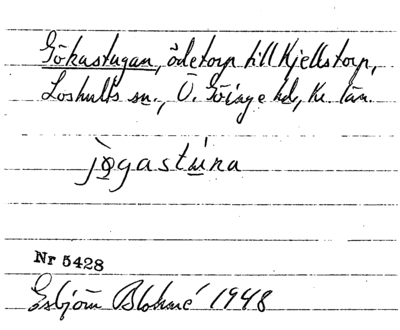 Gökastugan, ödetorp till Kjellstorp,
Loshults sn., Ö. Göinge hd, Kr. län.
jøgastúna
Nr 5428
Esbjörn Blohmé 1948